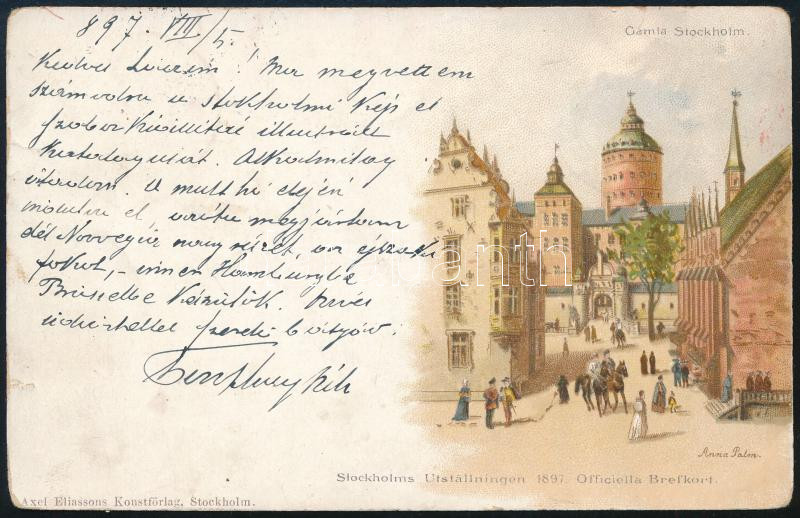 897. VIII/5.
Gamla Stockholm.
Kedves Lacim! Ma megvettem
számodra a Stokholmi Kép és
szobor Kiállítás illustrált
Katalogusát. Alkalmilag
átadom. A mult hó elején
indultam el, azóta megjártam
dél Norvégia nagy részét, az északi
fokot, – innen Hamburgba
Brüsselbe készülök. Szíves
üdvözlettel szerető bátyád.
Anna Palm.
Stockholms Utställningen 1897. Officiella Brefkort.
Axel Eliassons Konstförlag, Stockholm.